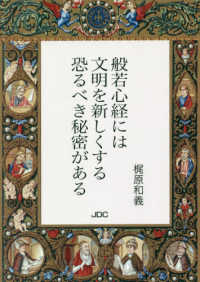 般若心経には
文明を新しくする
恐るべき秘密がある
梶原和義
JDC